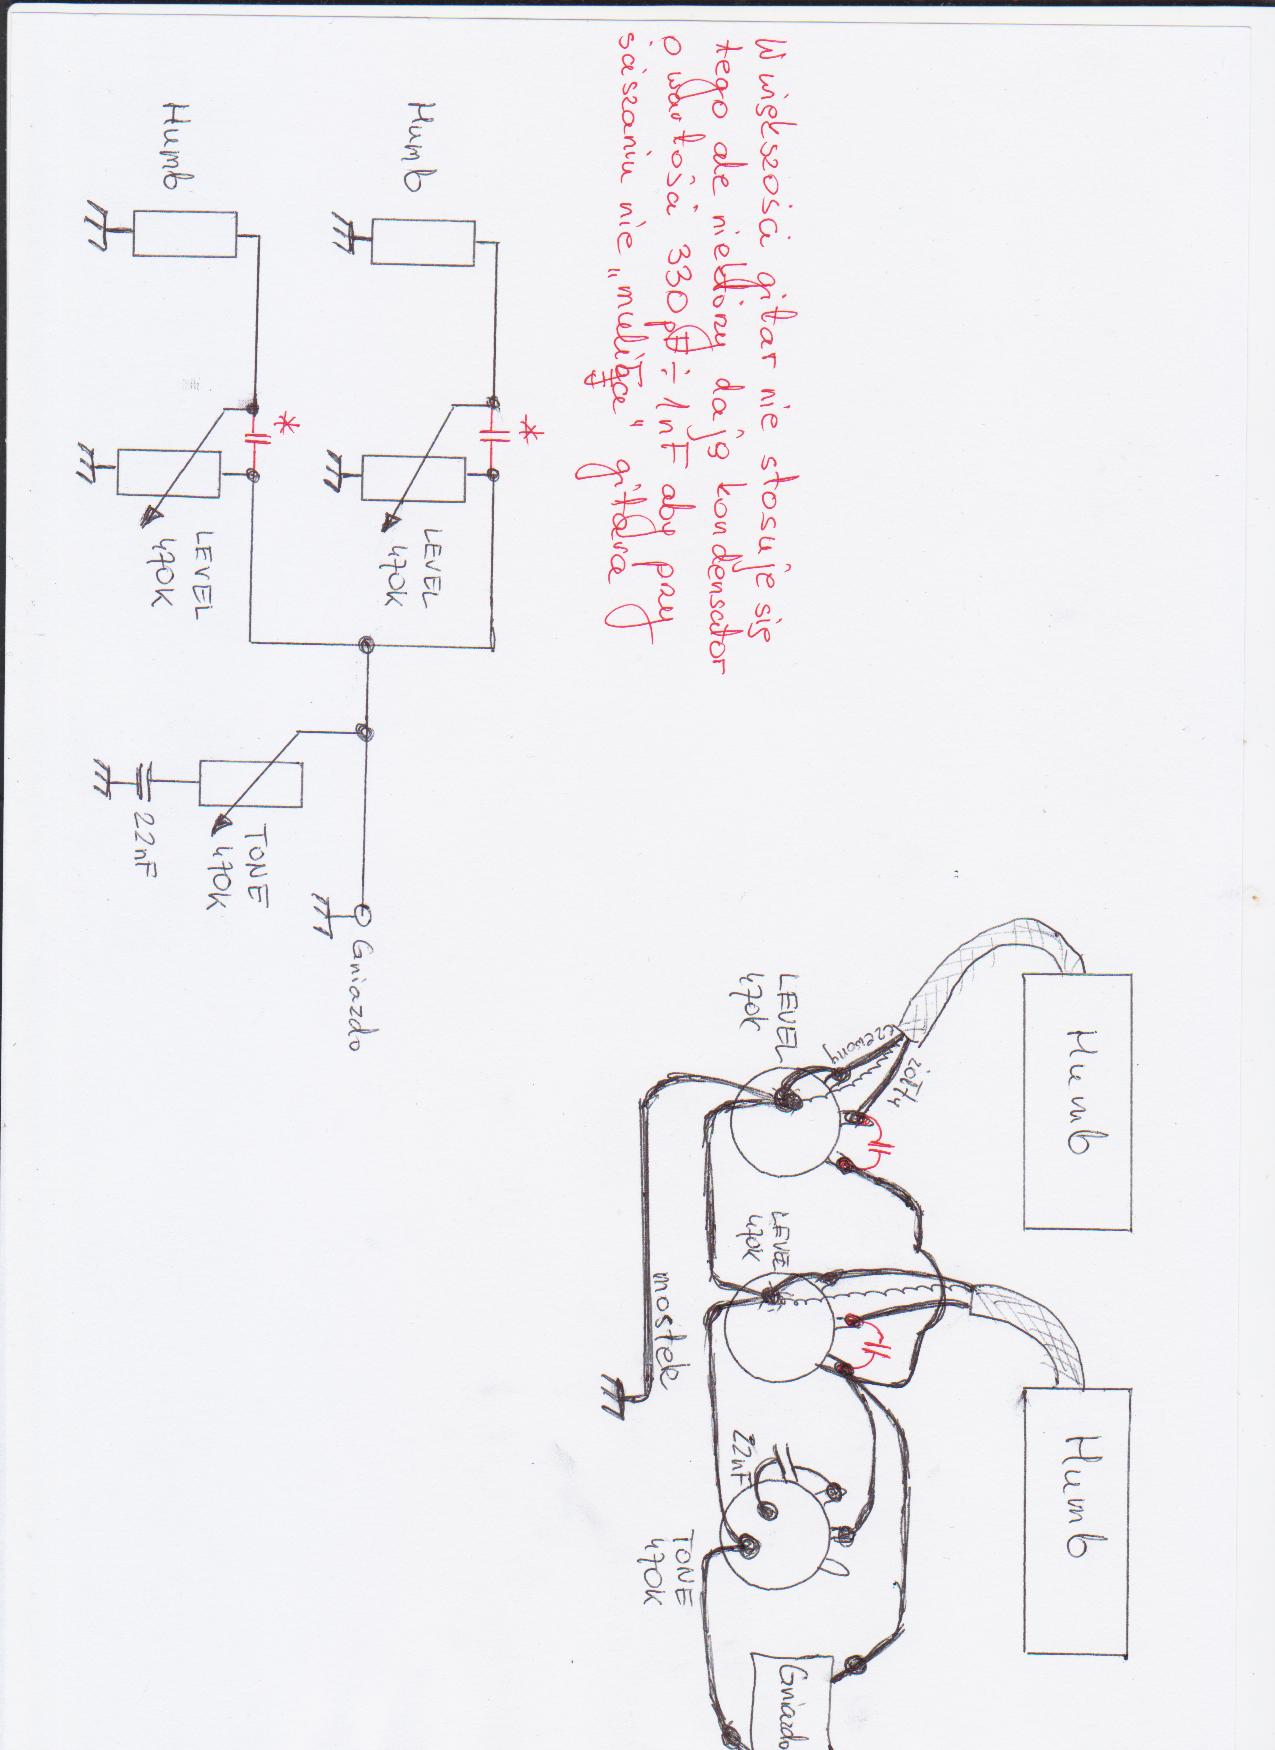 W większości gitar nie stosuje się
tego ale niektórzy dają kondensator
o wartości 330pF ÷ 1nF aby przy
nie „muliła" gitara
*
*
Humb
Humb
LEVEL
470K
LEVEL
470K
TONE
470K
22nF
Gniazdo
Humb
Humb
czerwony
żółty
LEVEL
470K
LEVEL
470K
mostek
22nF
TONE
470K
Gniazdo